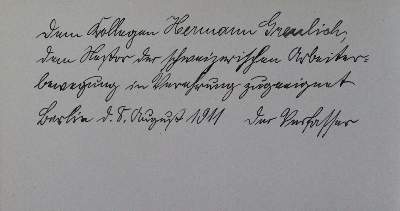 Dem Kollegen Hermann Greulich,
dem Nestor der schweizerischen Arbeiter=
bewegung in Verehrung zugeeignet
Berlin d. 8. August 1911 Der Verfasser